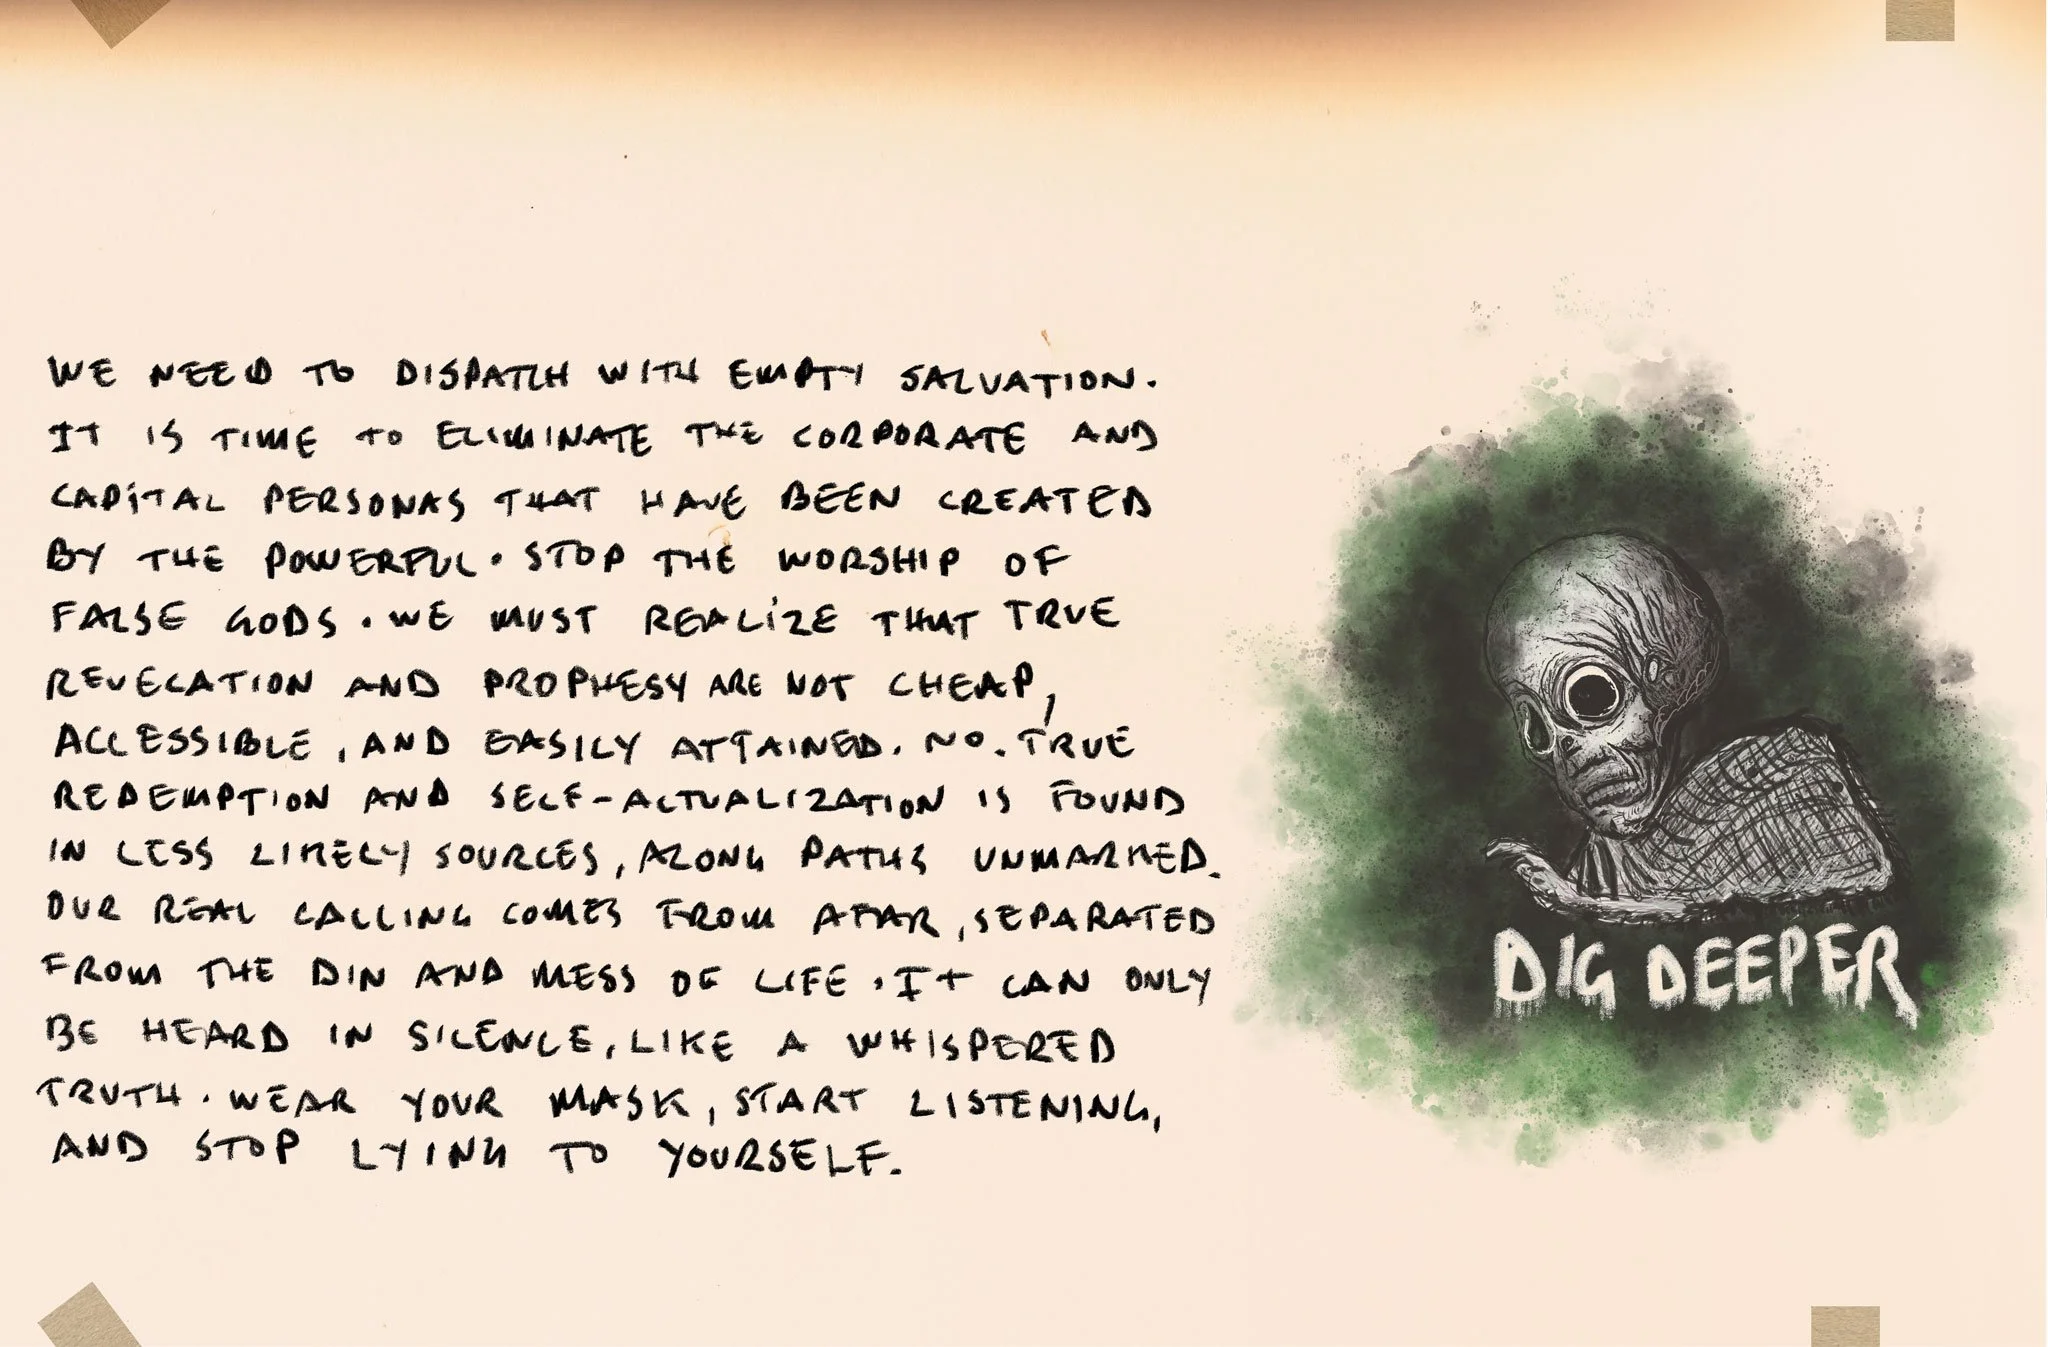 WE NEED TO DISPATCH WITH EMPTY SALVATION.
IT IS TIME TO ELIMINATE THE CORPORATE AND
CAPITAL PERSONAS THAT HAVE BEEN CREATED
BY THE POWERFUL. STOP THE WORSHIP OF
FALSE GODS. WE MUST REALIZE THAT TRUE
REVELATION AND PROPHESY ARE NOT CHEAP,
ACCESSIBLE, AND EASILY ATTAINED. NO. TRUE
REDEMPTION AND SELF-ACTUALIZATION IS FOUND
IN LESS LIKELY SOURCES, ALONG PATHS UNMARKED.
OUR REAL CALLING COMES FROM AFAR, SEPARATED
FROM THE DIN AND MESS OF LIFE. IT CAN ONLY
BE HEARD IN SILENCE, LIKE A WHISPERED
TRUTH. WEAR YOUR MASK, START LISTENING,
AND STOP LYING TO YOURSELF.
DIG DEEPER